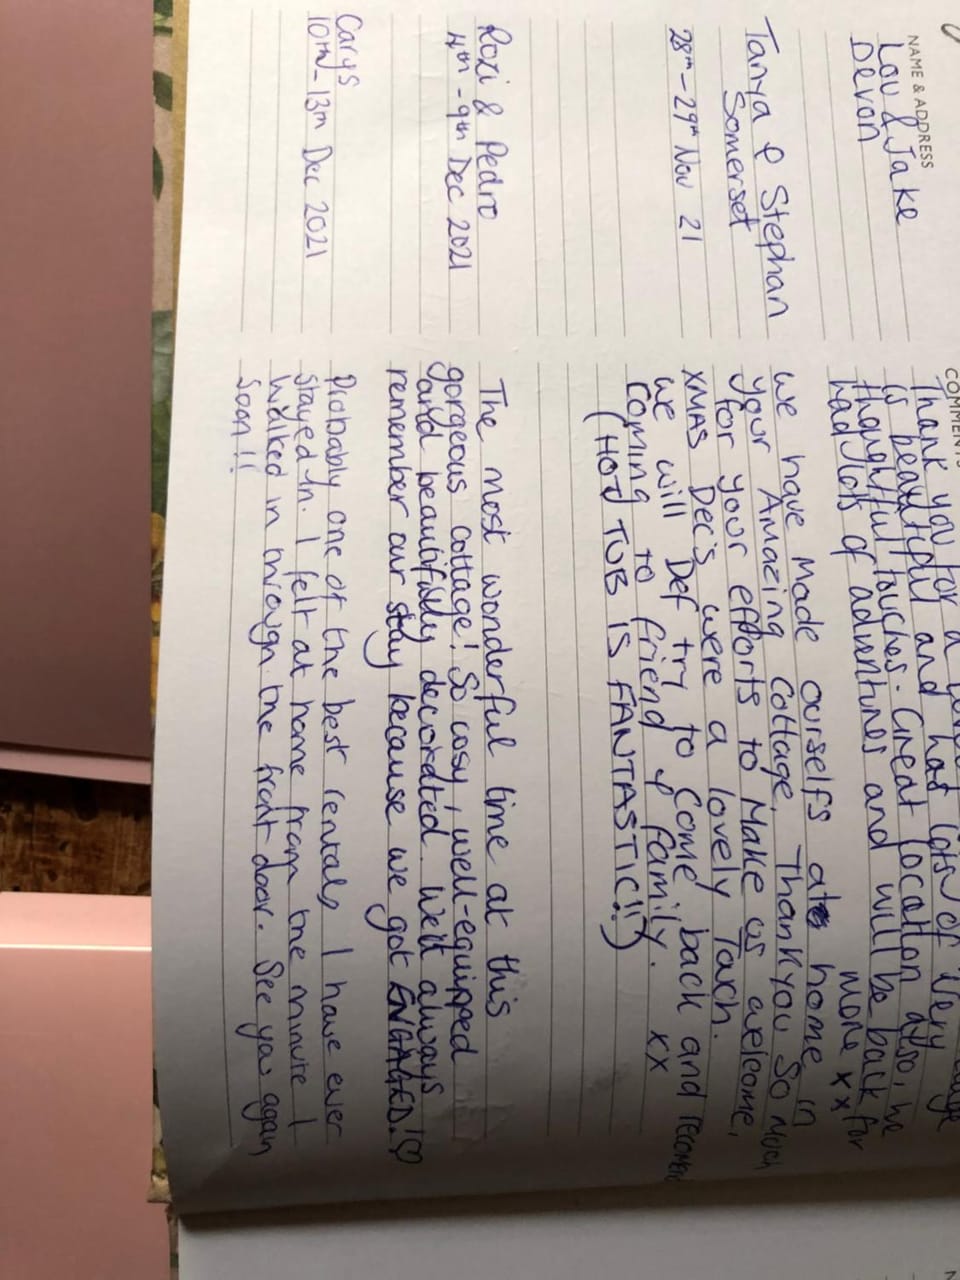 NAME & ADDRESS
Lou & Jake
Devon
COMMENTS
Thank you for a
is beautiful and has lots of very
thoughtful touches. Great location also, we
had lots of adventures and will be back for
more xx
Tanya & Stephan
Somerset
28th - 29th Nov 21
We have Made ourselfs at home in
your Amazing Cottage. Thankyou So Much
for your efforts to Make us welcome,
XMAS Dec's were a lovely Tach.
We will Def try to Come back and
Coming to friend & family. xx
(HOT TUB IS FANTASTIC!!)
Roxi & Pedro
4th - 9th Dec 2021
The most wonderful time at this
gorgeous cottage! So cosy, well-equipped
and beautifully decorated. We'll always
remember our stay because we got ENGAGED!♡
Carys
10th - 13th Dec 2021
Probably one of the best rentals I have ever
stayed in. I felt at home from the minute I
walked in through the front door. See you again
Soon!!